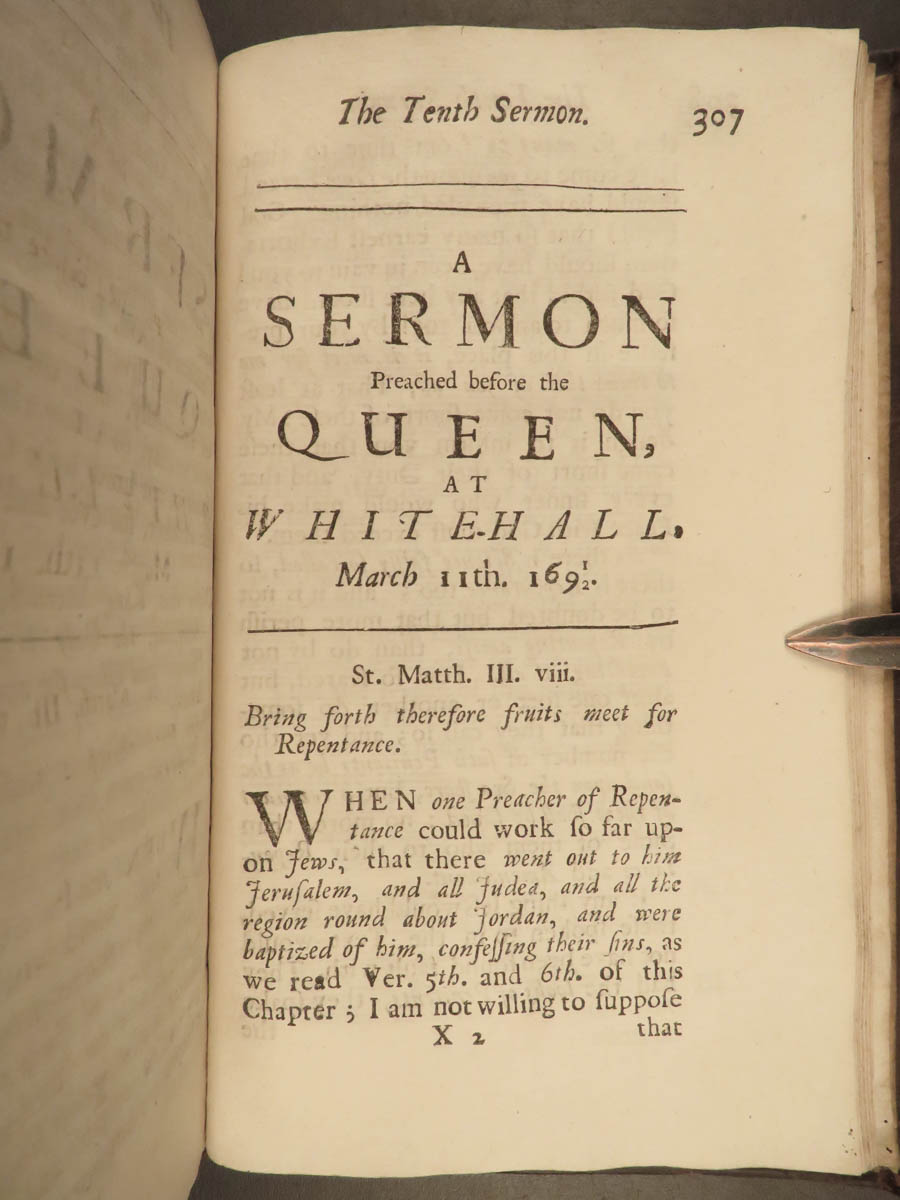 The Tenth Sermon. 307
A
SERMON
Preached before the
QUEEN,
AT
WHITE-HALL.
March 11th. 169½.
St. Matth. III. viii.
Bring forth therefore fruits meet for
Repentance.
WHEN one Preacher of Repen-
tance could work ſo far up-
on Jews, that there went out to him
Jeruſalem, and all Judea, and all the
region round about Jordan, and were
baptized of him, confeſſing their ſins, as
we read Ver. 5th. and 6th. of this
Chapter; I am not willing to ſuppoſe
X 2 that